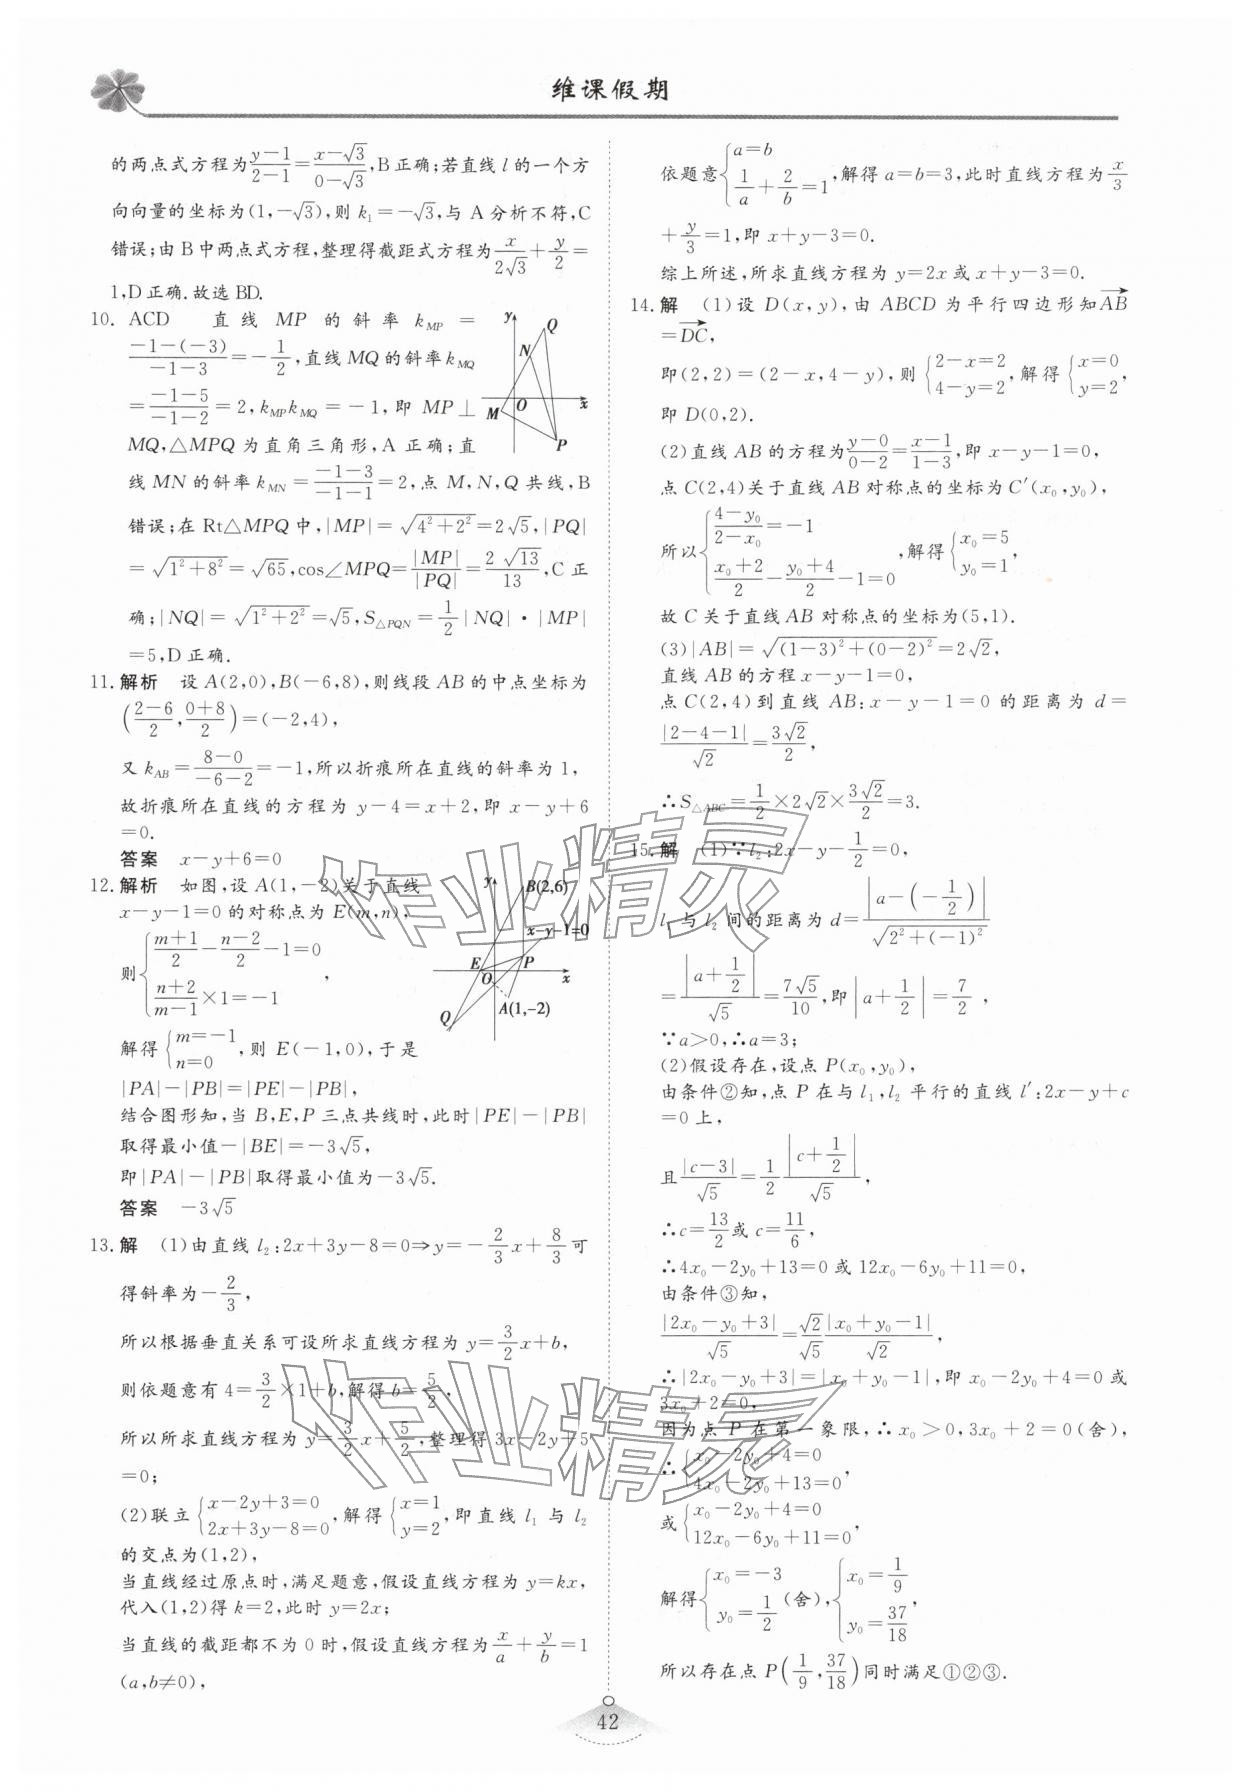 维课假期
的两点式方程为\frac{y-1}{2-1}=\frac{x-\sqrt{3}}{0-\sqrt{3}},B正确;若直线l的一个方
向向量的坐标为(1,-\sqrt{3}),则k_1=-\sqrt{3},与A分析不符,C
错误;由B中两点式方程,整理得截距式方程为\frac{x}{2\sqrt{3}}+\frac{y}{2}=
1,D正确.故选BD.
10. ACD 直线MP的斜率k_{MP}=
\frac{-1-(-3)}{-1-3}=-\frac{1}{2},直线MQ的斜率k_{MQ}
=\frac{-1-5}{-1-2}=2,k_{MP}k_{MQ}=-1,即MP⊥
MQ,△MPQ为直角三角形,A正确;直
线MN的斜率k_{MN}=\frac{-1-3}{-1-1}=2,点M,N,Q共线,B
错误;在Rt△MPQ中,|MP|=\sqrt{4^2+2^2}=2\sqrt{5},|PQ|
=\sqrt{1^2+8^2}=\sqrt{65},cos∠MPQ=\frac{|MP|}{|PQ|}=\frac{2\sqrt{13}}{13},C正
确;|NQ|=\sqrt{1^2+2^2}=\sqrt{5},S_{△PQN}=\frac{1}{2}|NQ|·|MP|
=5,D正确.
y Q N M O x P
11. 解析 设A(2,0),B(-6,8),则线段AB的中点坐标为
(\frac{2-6}{2},\frac{0+8}{2})=(-2,4),
又k_{AB}=\frac{8-0}{-6-2}=-1,所以折痕所在直线的斜率为1,
故折痕所在直线的方程为y-4=x+2,即x-y+6
=0.
答案 x-y+6=0
12. 解析 如图,设A(1,-2)关于直线
x-y-1=0的对称点为E(m,n),
则{\frac{m+1}{2}-\frac{n-2}{2}-1=0
\frac{n+2}{m-1}×1=-1,
解得{m=-1
n=0,则E(-1,0),于是
|PA|-|PB|=|PE|-|PB|,
y B(2,6) x-y-1=0 E P O x Q A(1,-2)
结合图形知,当B,E,P三点共线时,此时|PE|-|PB|
取得最小值-|BE|=-3\sqrt{5},
即|PA|-|PB|取得最小值为-3\sqrt{5}.
答案 -3\sqrt{5}
13. 解 (1)由直线l_2:2x+3y-8=0⇒y=-\frac{2}{3}x+\frac{8}{3}可
得斜率为-\frac{2}{3},
所以根据垂直关系可设所求直线方程为y=\frac{3}{2}x+b,
则依题意有4=\frac{3}{2}×1+b,解得b=\frac{5}{2},
所以所求直线方程为y=\frac{3}{2}x+\frac{5}{2},整理得3x-2y+5
=0;
(2)联立{x-2y+3=0
2x+3y-8=0,解得{x=1
y=2,即直线l_1与l_2
的交点为(1,2),
当直线经过原点时,满足题意,假设直线方程为y=kx,
代入(1,2)得k=2,此时y=2x;
当直线的截距都不为0时,假设直线方程为\frac{x}{a}+\frac{y}{b}=1
(a,b≠0),
依题意{a=b
\frac{1}{a}+\frac{2}{b}=1,解得a=b=3,此时直线方程为\frac{x}{3}
+\frac{y}{3}=1,即x+y-3=0.
综上所述,所求直线方程为y=2x或x+y-3=0.
14. 解 (1)设D(x,y),由ABCD为平行四边形知\overrightarrow{AB}
=\overrightarrow{DC},
即(2,2)=(2-x,4-y),则{2-x=2
4-y=2,解得{x=0
y=2,
即D(0,2).
(2)直线AB的方程为\frac{y-0}{0-2}=\frac{x-1}{1-3},即x-y-1=0,
点C(2,4)关于直线AB对称点的坐标为C'(x_0,y_0),
所以{\frac{4-y_0}{2-x_0}=-1
\frac{x_0+2}{2}-\frac{y_0+4}{2}-1=0,解得{x_0=5
y_0=1,
故C关于直线AB对称点的坐标为(5,1).
(3)|AB|=\sqrt{(1-3)^2+(0-2)^2}=2\sqrt{2},
直线AB的方程x-y-1=0,
点C(2,4)到直线AB:x-y-1=0的距离为d=
\frac{|2-4-1|}{\sqrt{2}}=\frac{3\sqrt{2}}{2},
∴S_{△ABC}=\frac{1}{2}×2\sqrt{2}×\frac{3\sqrt{2}}{2}=3.
15. 解 (1)∵l_2:2x-y-\frac{1}{2}=0,
l_1与l_2间的距离为d=\frac{|a-(-\frac{1}{2})|}{\sqrt{2^2+(-1)^2}}
=\frac{|a+\frac{1}{2}|}{\sqrt{5}}=\frac{7\sqrt{5}}{10},即|a+\frac{1}{2}|=\frac{7}{2},
∵a>0,∴a=3;
(2)假设存在,设点P(x_0,y_0),
由条件②知,点P在与l_1,l_2平行的直线l':2x-y+c
=0上,
且\frac{|c-3|}{\sqrt{5}}=\frac{1}{2}\frac{|c+\frac{1}{2}|}{\sqrt{5}},
∴c=\frac{13}{2}或c=\frac{11}{6},
∴4x_0-2y_0+13=0或12x_0-6y_0+11=0,
由条件③知,
\frac{|2x_0-y_0+3|}{\sqrt{5}}=\frac{\sqrt{2}}{\sqrt{5}}\frac{|x_0+y_0-1|}{\sqrt{2}},
∴|2x_0-y_0+3|=|x_0+y_0-1|,即x_0-2y_0+4=0或
3x_0+2=0,
因为点P在第一象限,∴x_0>0,3x_0+2=0(舍),
∴{x_0-2y_0+4=0
4x_0-2y_0+13=0,
或{x_0-2y_0+4=0
12x_0-6y_0+11=0,
解得{x_0=-3
y_0=\frac{1}{2}(舍),{x_0=\frac{1}{9}
y_0=\frac{37}{18},
所以存在点P(\frac{1}{9},\frac{37}{18})同时满足①②③.
作业精灵
作业精灵
42